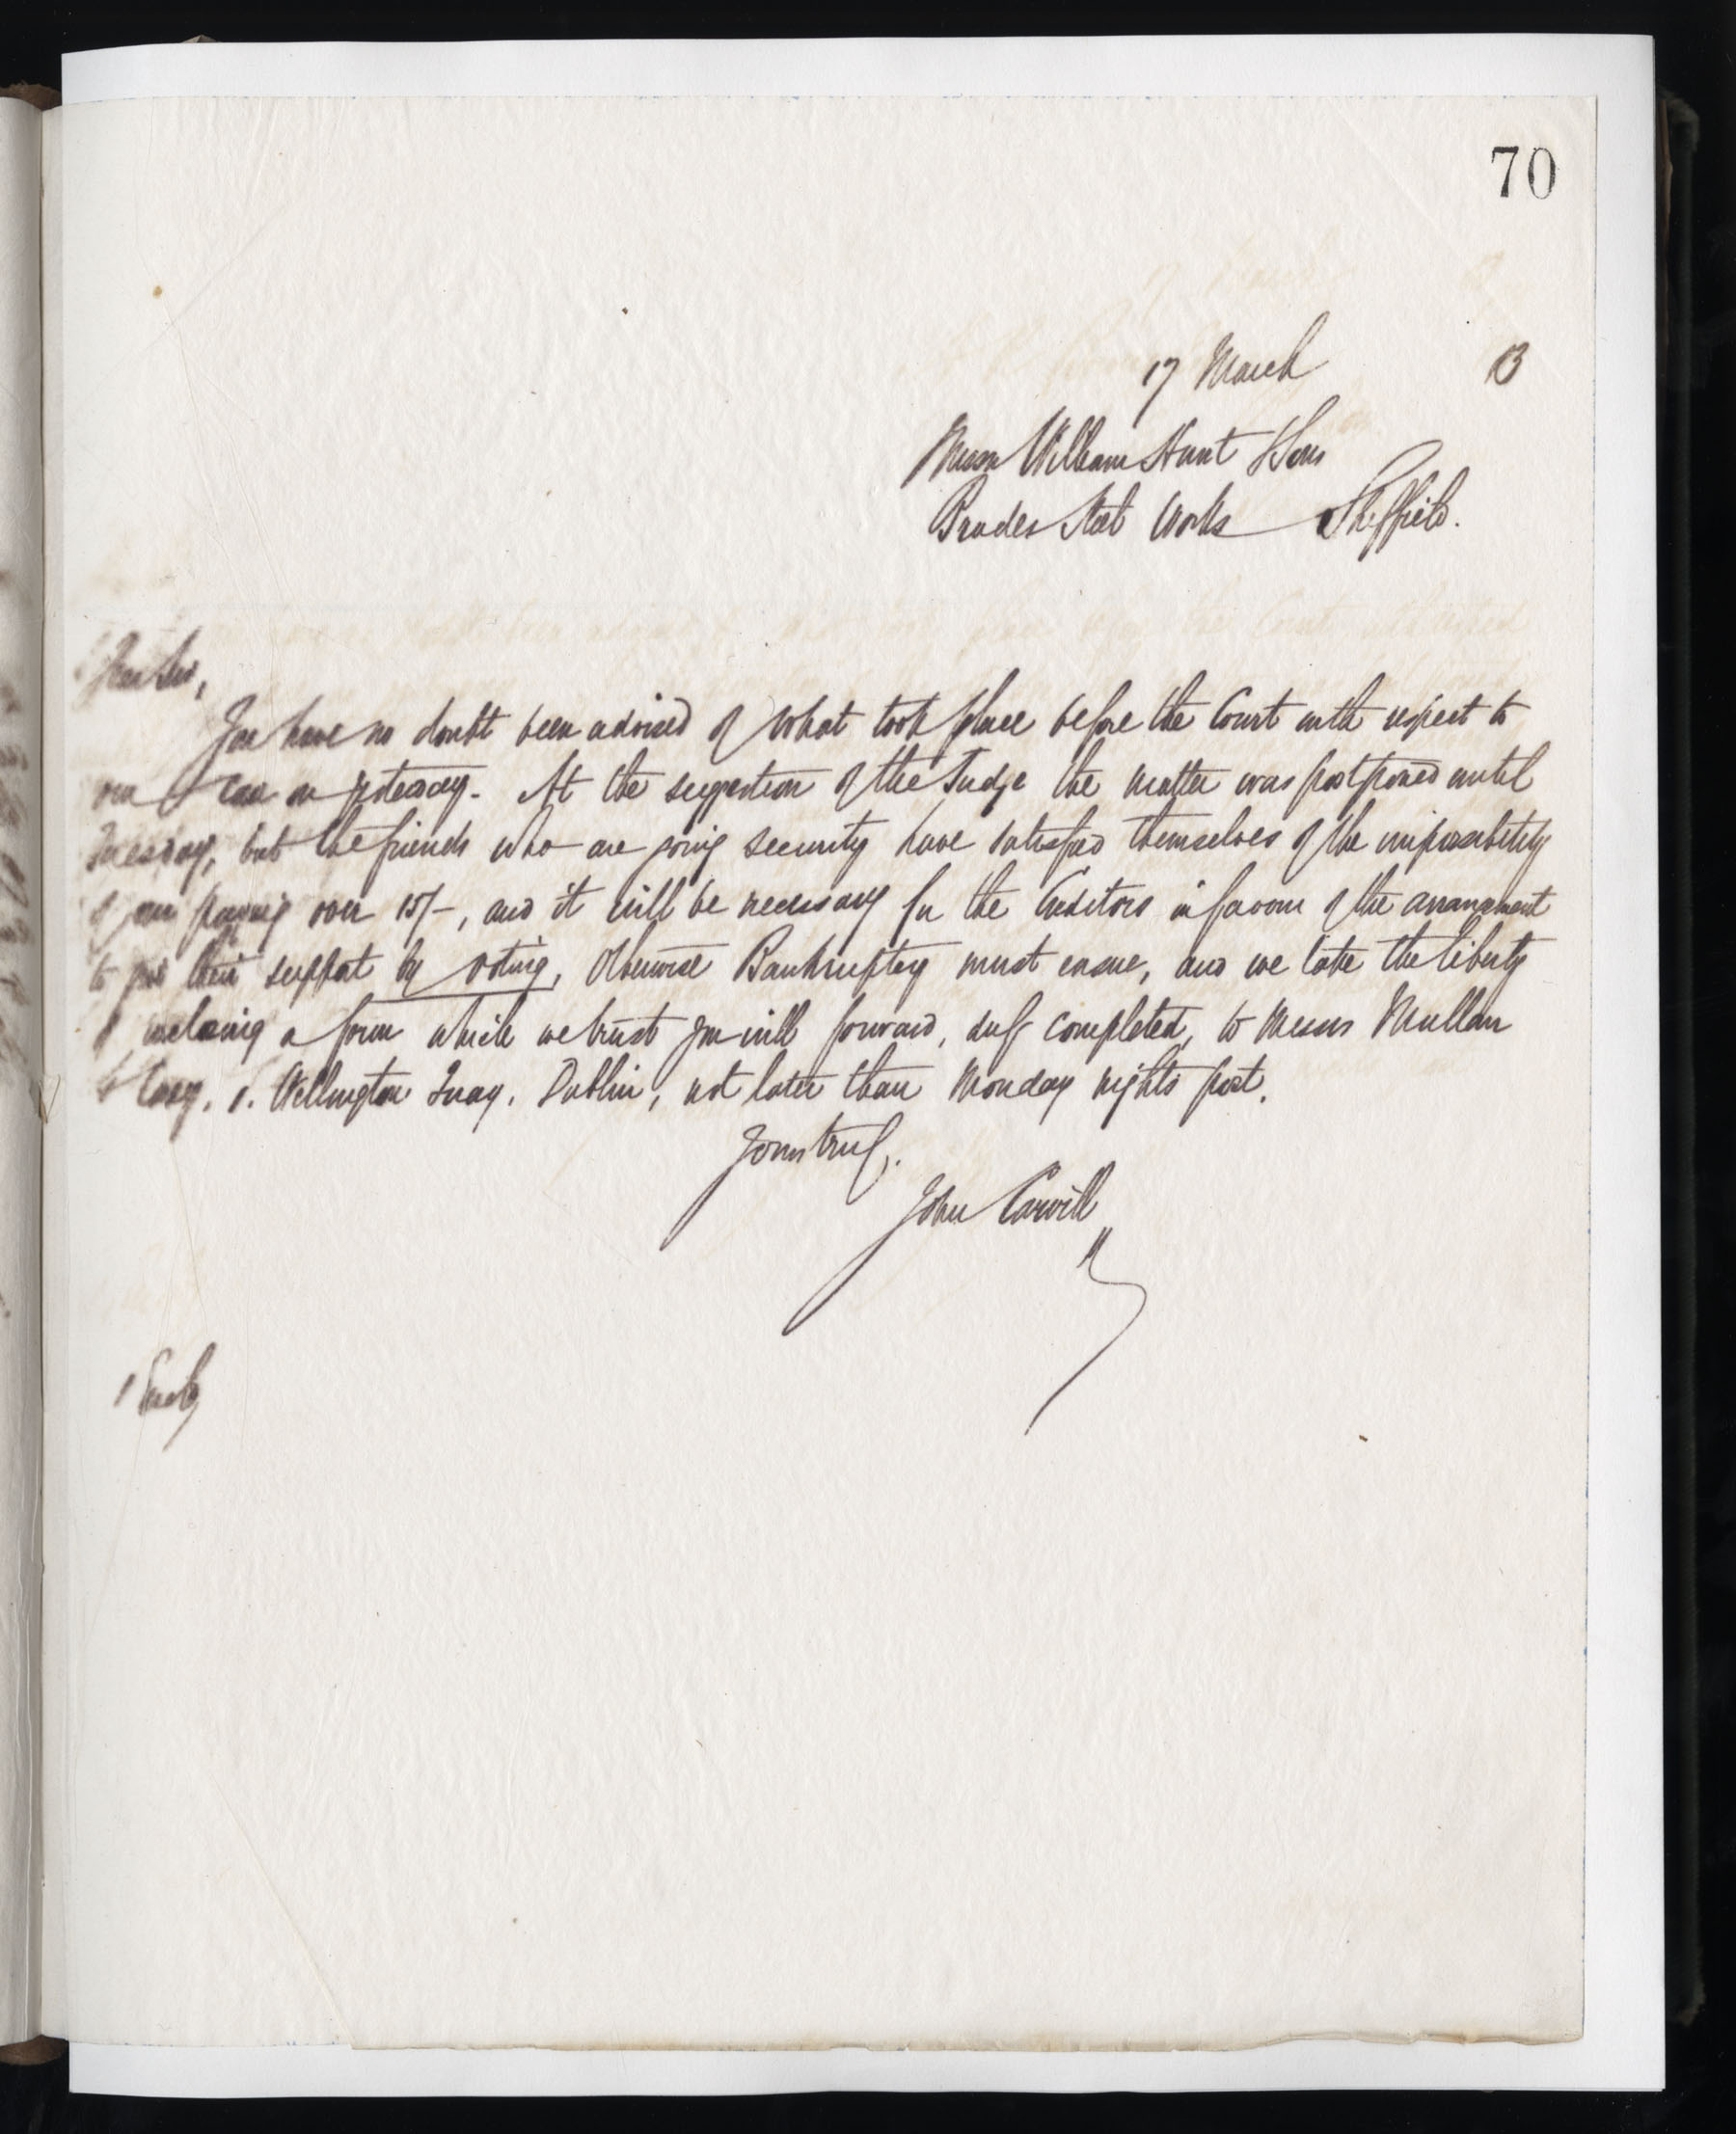 70
17 March 13
Messrs William Hunt & Sons
Brades Steel Works Sheffield.
Dear Sirs,
You have no doubt been advised of what took place before the Court with respect to
our case on yesterday. At the suggestion of the Judge the matter was postponed until
Tuesday, but the friends who are going security have satisfied themselves of the impossibility
of our paying over 15/-, and it will be necessary for the Creditors in favour of the arrangement
to give their support by voting, otherwise Bankruptcy must ensue, and we take the liberty
of enclosing a form which we trust you will forward, duly completed, to Messrs Mullan
Wellington Quay. Dublin, not later than Monday nights post.
Yours truly.
John Carvill
1 Enclo